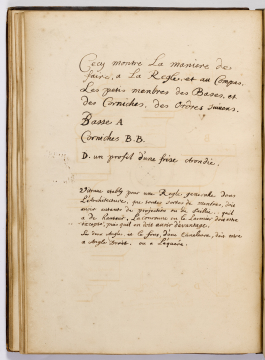 Cecy montre La maniere de
faire, a La Regle, et au Compas,
Les petis membres des Bases, et
des Corniches, des Ordres suivens.
Basse A
Corniches B.B.
D. un profil d'une frise Arondie.
Vitruue establÿ pour une Regle generale, Dans
L'Architecture, que toutes sortes de membres, doit
avoir autant de projecture ou de Saillie, quil
a de Hauteur, La Couronne ou le Larmier doit estre
excepté, pas quil en doit avoir davantage.
Le deux Angle, et le fons, d'une Canelure, doit estre
a Angle Droit, ou a L'équiere.